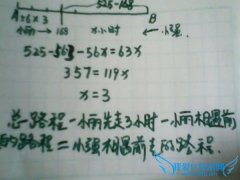 525-168
A 56×3 x小时 B
小丽→168 ←小强
525-563-56x=63x
357=119x
x=3
总路程-小丽先走3小时-小丽相遇前
的路程=小强相遇前走的路程.